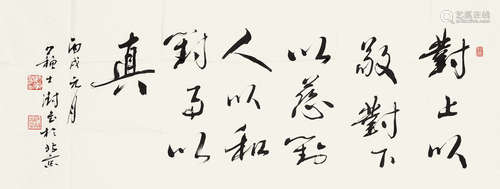 對上以
敬對下
以慈對
人以和
對事以
真
丙戌元月
士澍書於北京